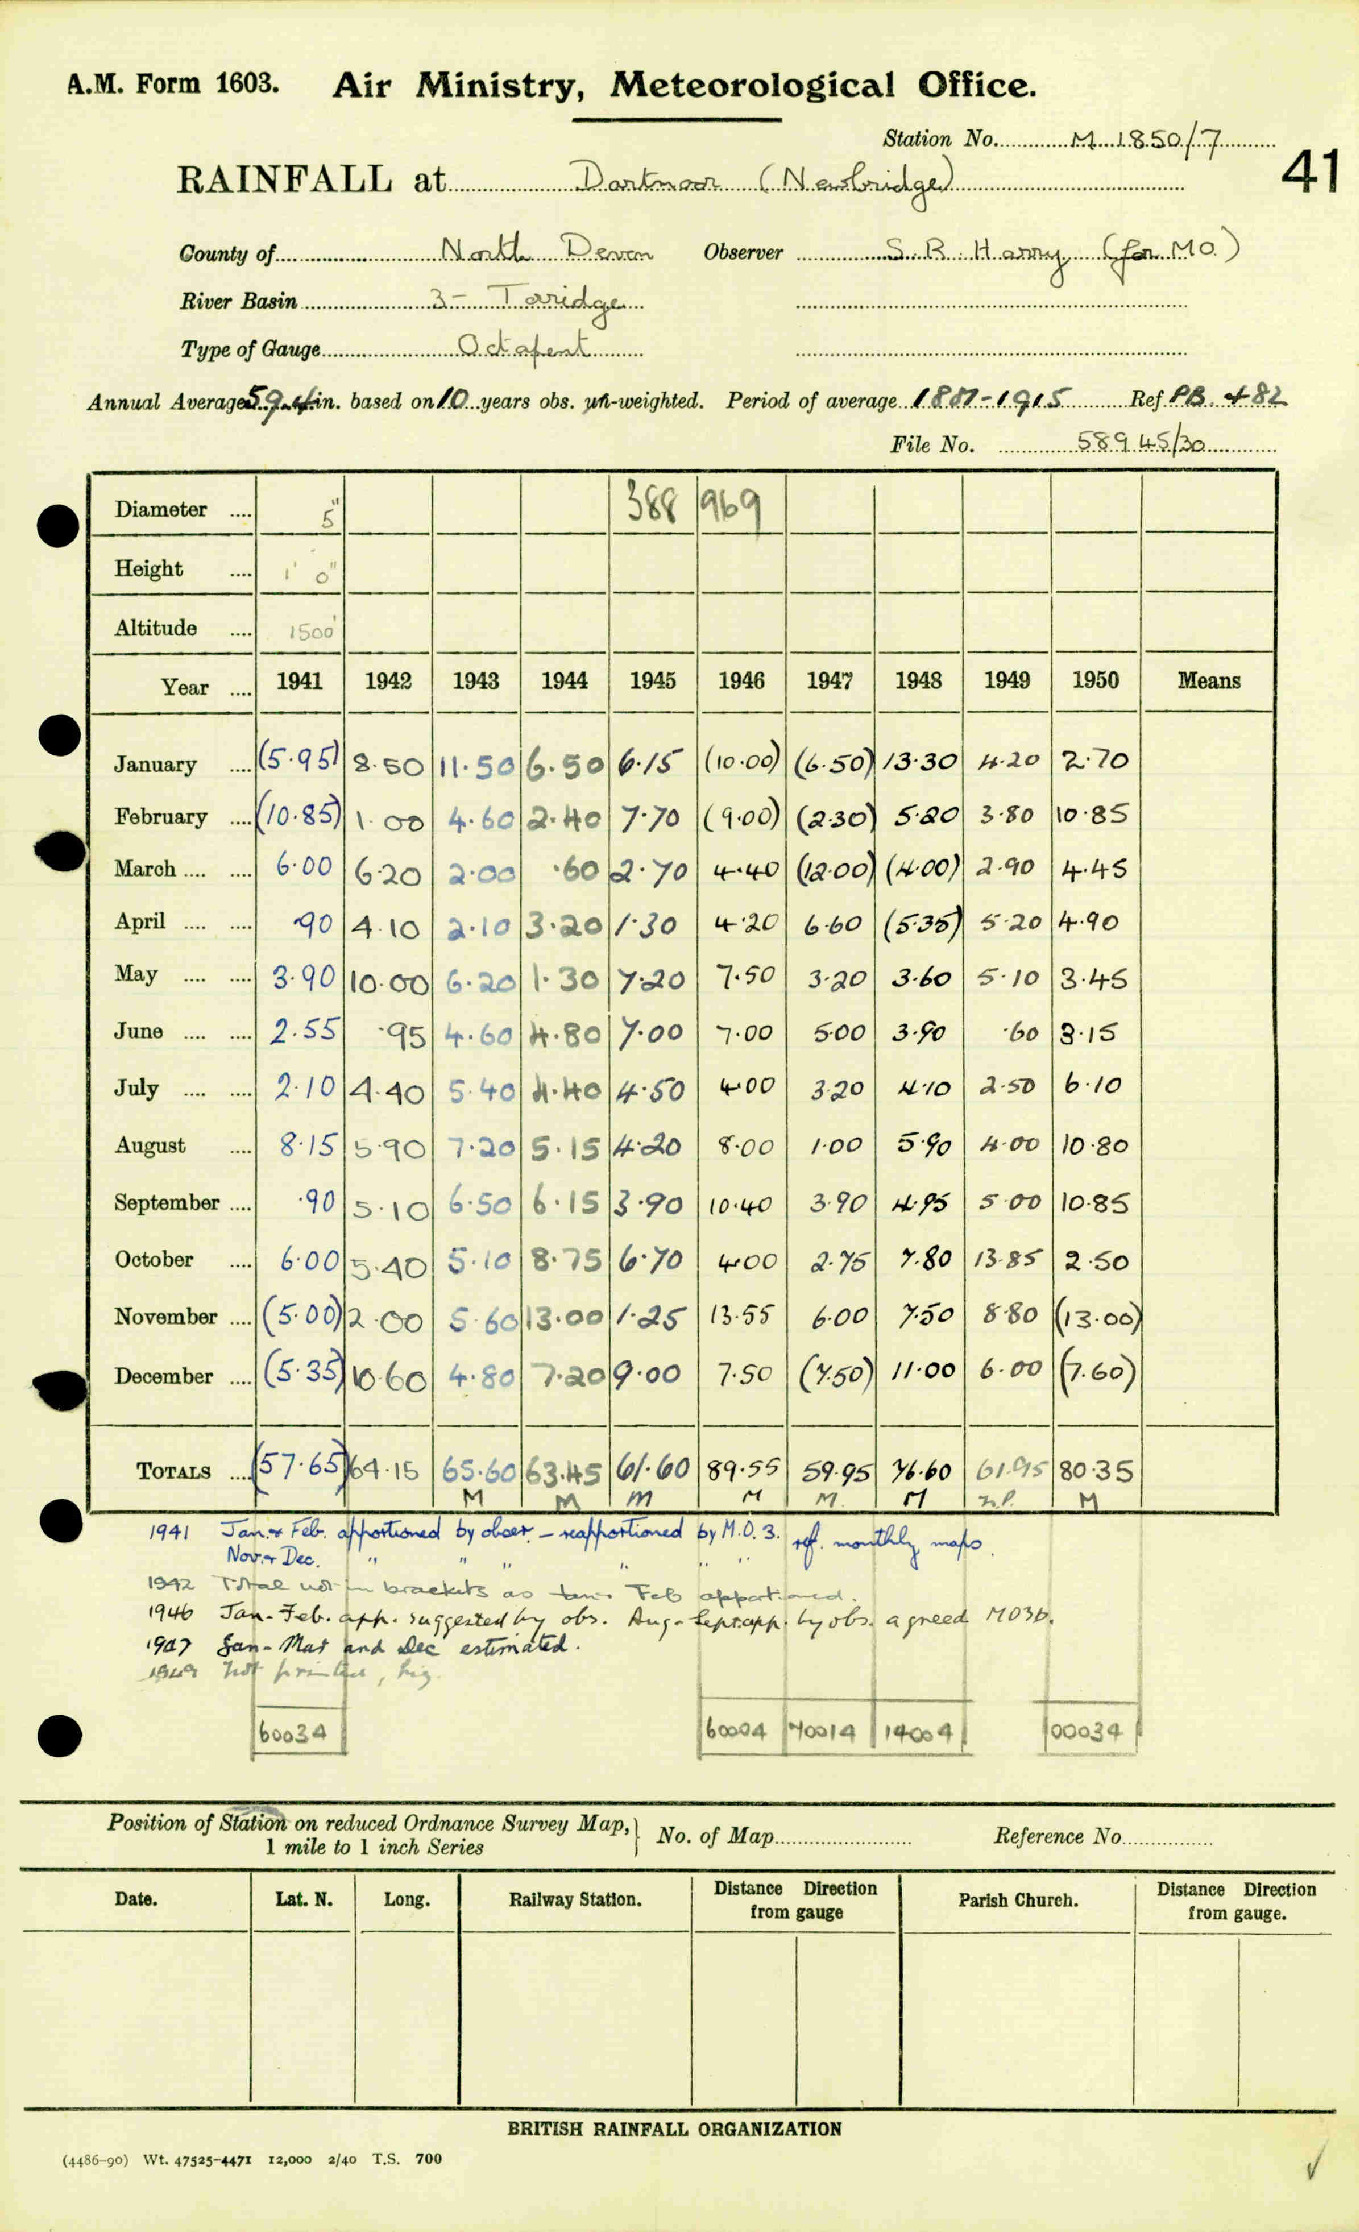 A.M. Form 1603. Air Ministry, Meteorological Office.
Station No. M 1850/7
41
RAINFALL at Dartmoor (Newbridge)
County of North Devon Observer S. R. Harry (for MO.)
River Basin 3 - Torridge
Type of Gauge Octapent
Annual Average 59.4 in. based on 10 years obs. un-weighted. Period of average 1881-1915 Ref. PB. 482
File No. 58945/30
Diameter .... 5" 388 969
Height .... 1' 0"
Altitude .... 1500'
Year .... 1941 1942 1943 1944 1945 1946 1947 1948 1949 1950 Means
January .... (5.95) 8.50 11.50 6.50 6.15 (10.00) (6.50) 13.30 4.20 2.70
February .... (10.85) 1.00 4.60 2.40 7.70 (9.00) (2.30) 5.20 3.80 10.85
March .... .... 6.00 6.20 2.00 .60 2.70 4.40 (12.00) (4.00) 2.90 4.45
April .... .... .90 4.10 2.10 3.20 1.30 4.20 6.60 (5.35) 5.20 4.90
May .... .... 3.90 10.00 6.20 1.30 7.20 7.50 3.20 3.60 5.10 3.45
June .... .... 2.55 .95 4.60 4.80 7.00 7.00 5.00 3.90 .60 3.15
July .... .... 2.10 4.40 5.40 4.40 4.50 4.00 3.20 4.10 2.50 6.10
August .... 8.15 5.90 7.20 5.15 4.20 8.00 1.00 5.90 4.00 10.80
September .... .90 5.10 6.50 6.15 3.90 10.40 3.90 4.95 5.00 10.85
October .... 6.00 5.40 5.10 8.75 6.70 4.00 2.75 7.80 13.85 2.50
November .... (5.00) 2.00 5.60 13.00 1.25 13.55 6.00 7.50 8.80 (13.00)
December .... (5.35) 10.60 4.80 7.20 9.00 7.50 (7.50) 11.00 6.00 (7.60)
TOTALS .... (57.65) 64.15 65.60 63.45 61.60 89.55 59.95 76.60 61.95 80.35
M M M M M. M n.p. M
1941 Jan. & Feb. apportioned by obser. - reapportioned by M.O.3. ref. monthly maps.
Nov. & Dec. " " " " " "
1942 Total not in brackets as Feb apportioned.
1946 Jan.-Feb. app. suggested by obs. Aug-Sept app. by obs. agreed MO3b.
1947 Jan-Mar and Dec estimated.
1949 not printed, hig.
60034 60004 70014 14004 00034
Position of Station on reduced Ordnance Survey Map,
1 mile to 1 inch Series
No. of Map Reference No.
Date. Lat. N. Long. Railway Station. Distance from gauge Direction Parish Church. Distance Direction from gauge.
BRITISH RAINFALL ORGANIZATION
(4486-90) Wt. 47525-4471 12,000 2/40 T.S. 700